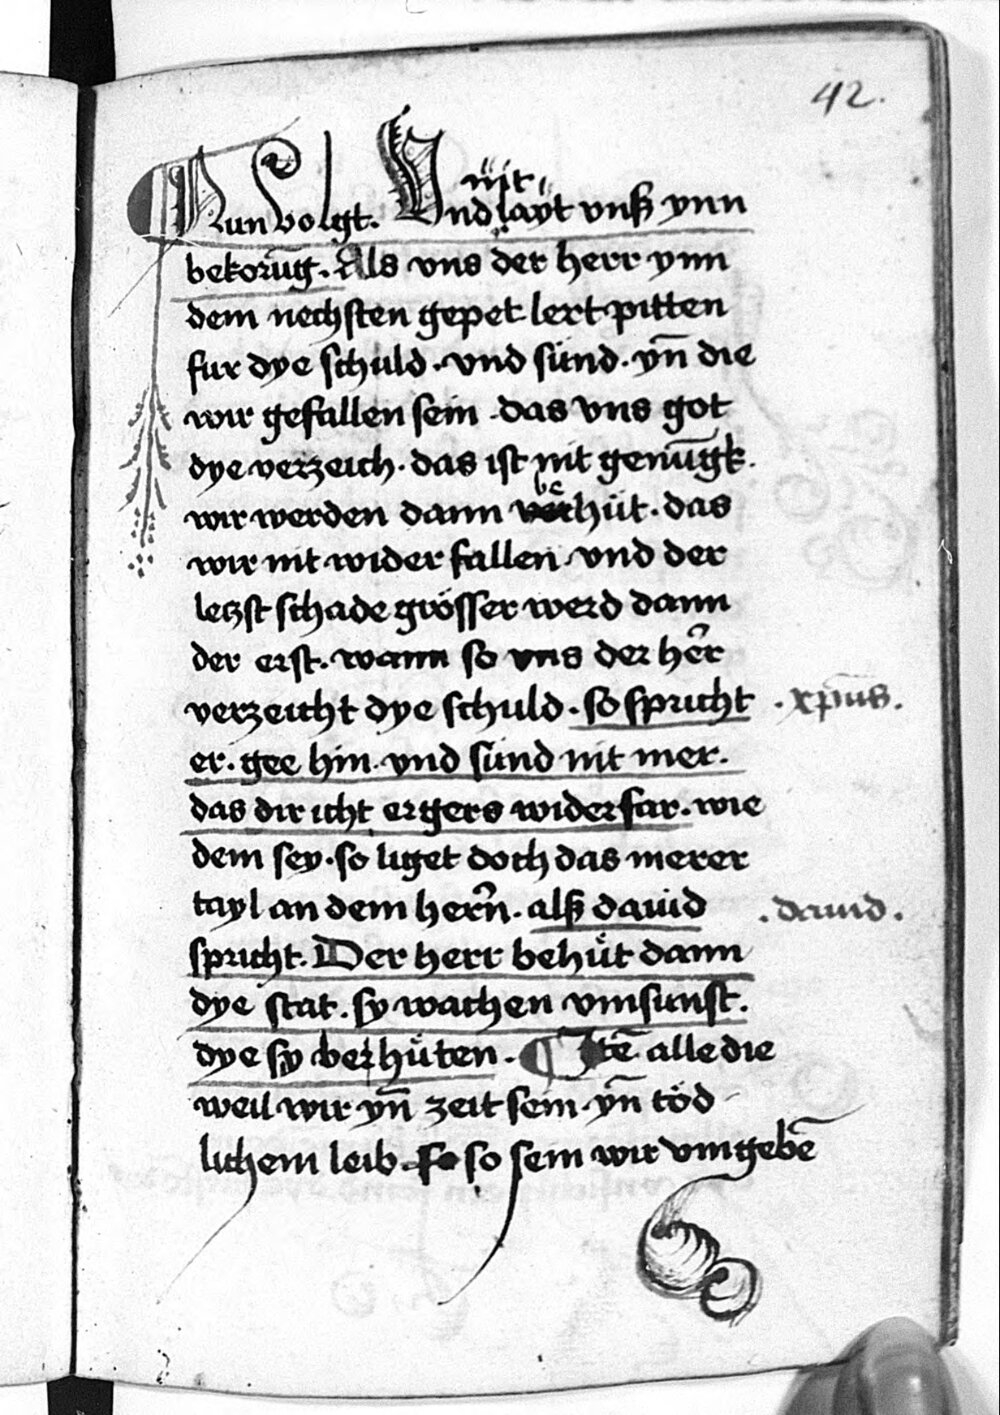 42.
Nun volgt. Und nit layt vnß ynn
bekorūg. Als vns der herr ynn
dem nechsten gepet lert pitten
fur dye schuld · vnd sünd · yn̄ die
wir gefallen sein · das vns got
dye verzeich · das ist nit genūgk.
wir werden dann behüt · das
wir nit wider fallen · vnd der
letzst schade grösser werd dann
der erst. wann so vns der her̃
verzeicht dye schuld · so spricht · xpūs.
er. gee hin · vnd sünd nit mer.
das dir icht ergers widerfar. wie
dem sey · so liget doch das merer
tayl an dem her̃n. alß dauid · dauid.
spricht. Der herr behüt dann
dye stat. sy wachen vmsunst.
dye sy verhüten. ¶ Itē alle die
weil wir yn̄ zeit sein · yn̄ töd
lichem leib. so so sein wir vmgebē